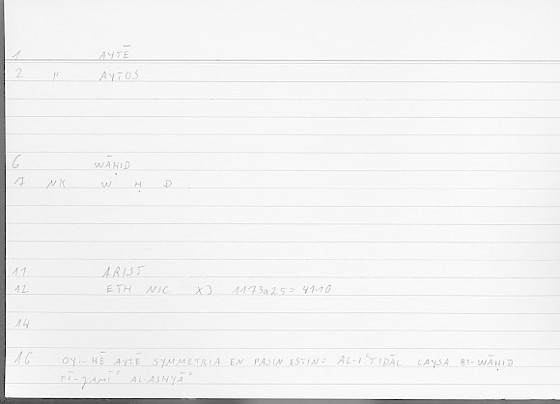 1 AYTĒ
2 " AYTOS
6 WĀḤID
7 NK W Ḥ D
11 ARIST
12 ETH NIC X3 1173a25 = 41.10
14
16 OY... HĒ AYTĒ SYMMETRIA EN PASIN ESTIN = AL-IʿTIDĀL LAYSA BI-WĀḤID
FĪ-JAMĪʿ AL-ASHYĀʾ